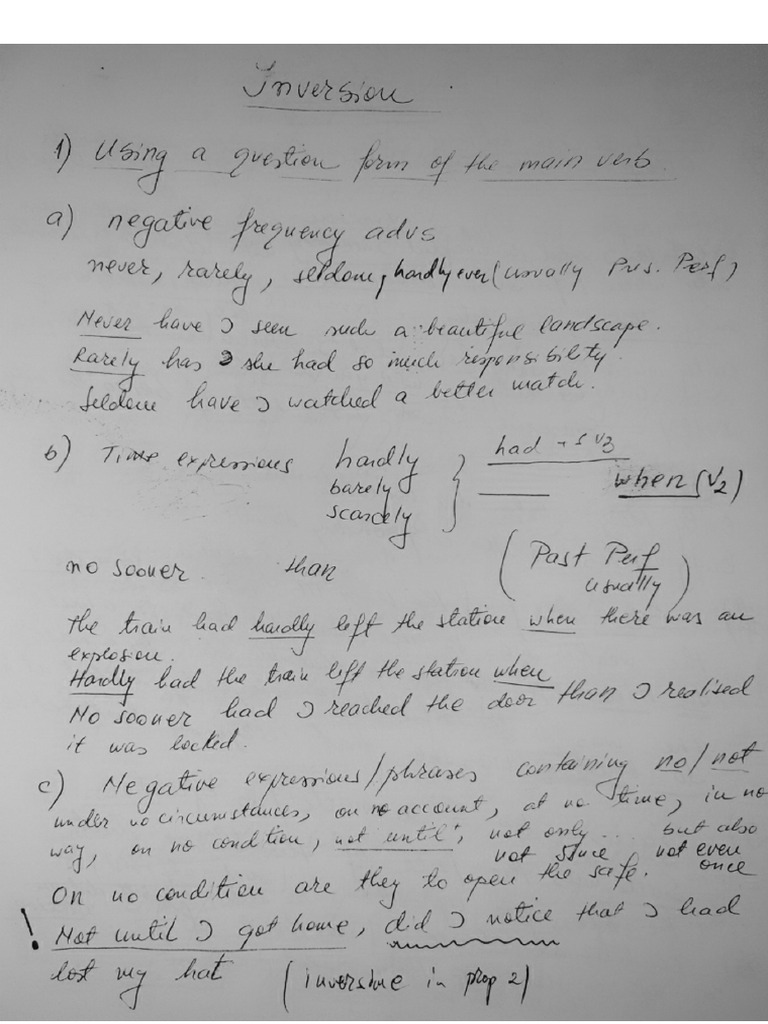 Inversion
1) Using a question form of the main verb.
a) negative frequency advs
never, rarely, seldom, hardly ever (usually Pres. Perf)
Never have I seen such a beautiful landscape.
Rarely has she had so much responsibility.
Seldom have I watched a better match.
b) Time expressions hardly } had + S V3
barely ____ when (V2)
scarcely
no sooner. than (Past Perf
usually)
The train had hardly left the station when there was an
explosion.
Hardly had the train left the station when
No sooner had I reached the door than I realised
it was locked.
c) Negative expressions/phrases containing no/not
under no circumstances, on no account, at no time, in no
way, on no condition, not until, not only... but also
not since not even
once
On no condition are they to open the safe.
! Not until I got home, did I notice that I had
lost my hat (inversion in prop 2)